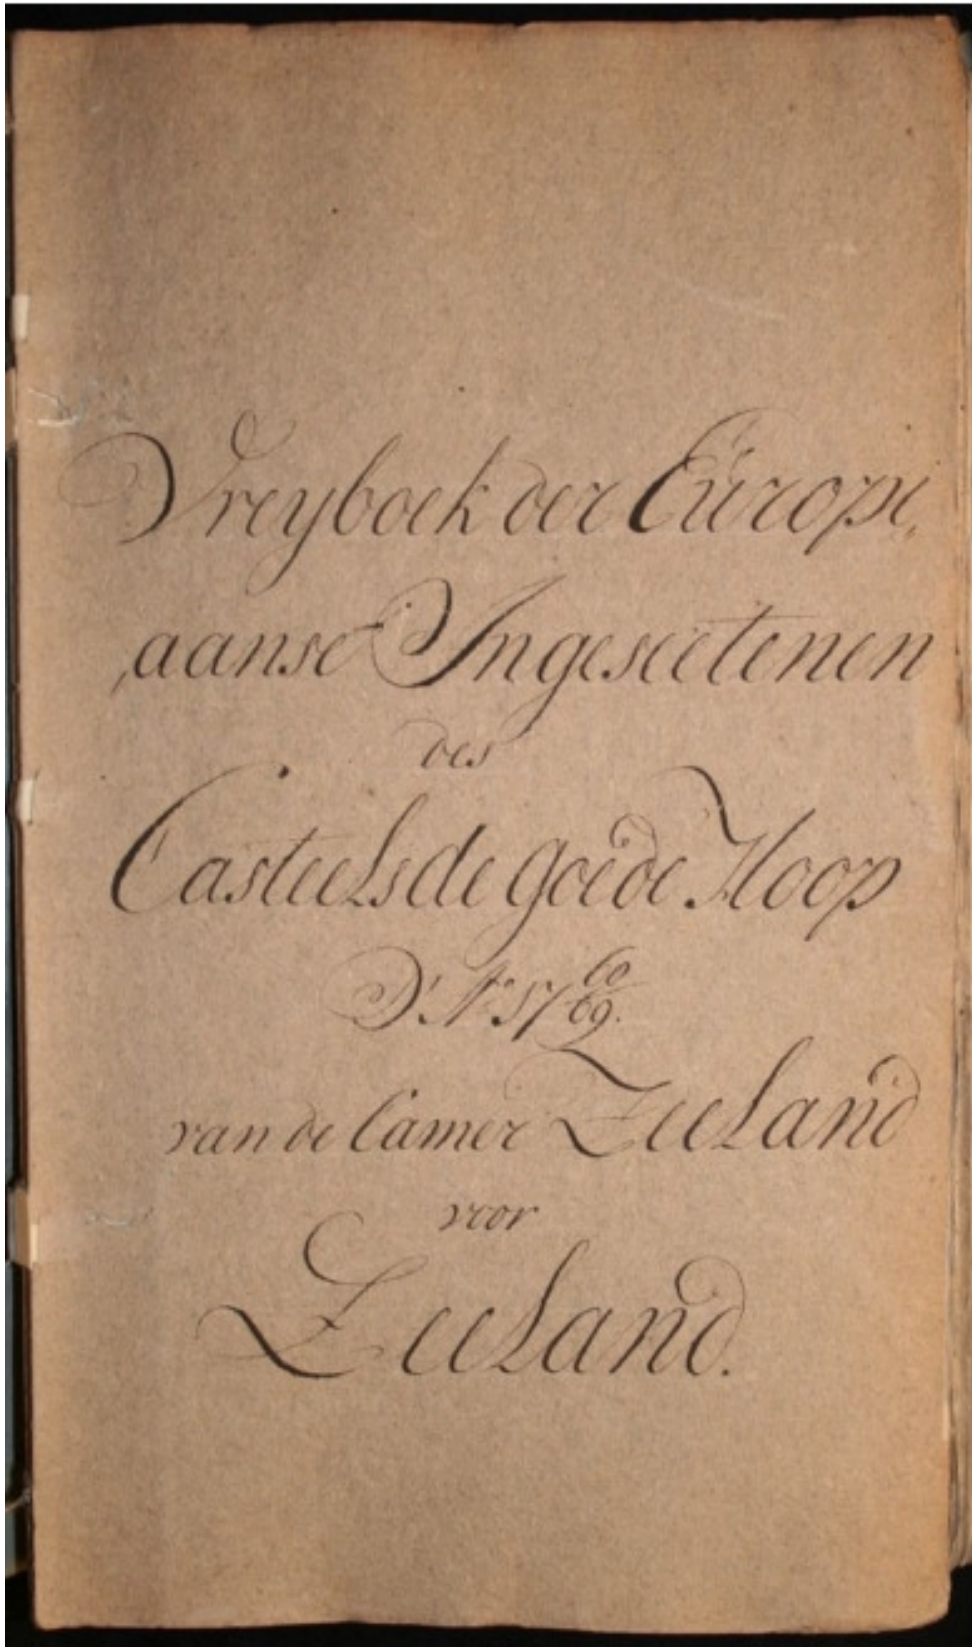 Vreyboek der Europe,
,aanse Ingeseetenen
des
Casteels de goede Hoop
D' A° 17 60/69.
van de Camer Zeeland
voor
Zeeland.